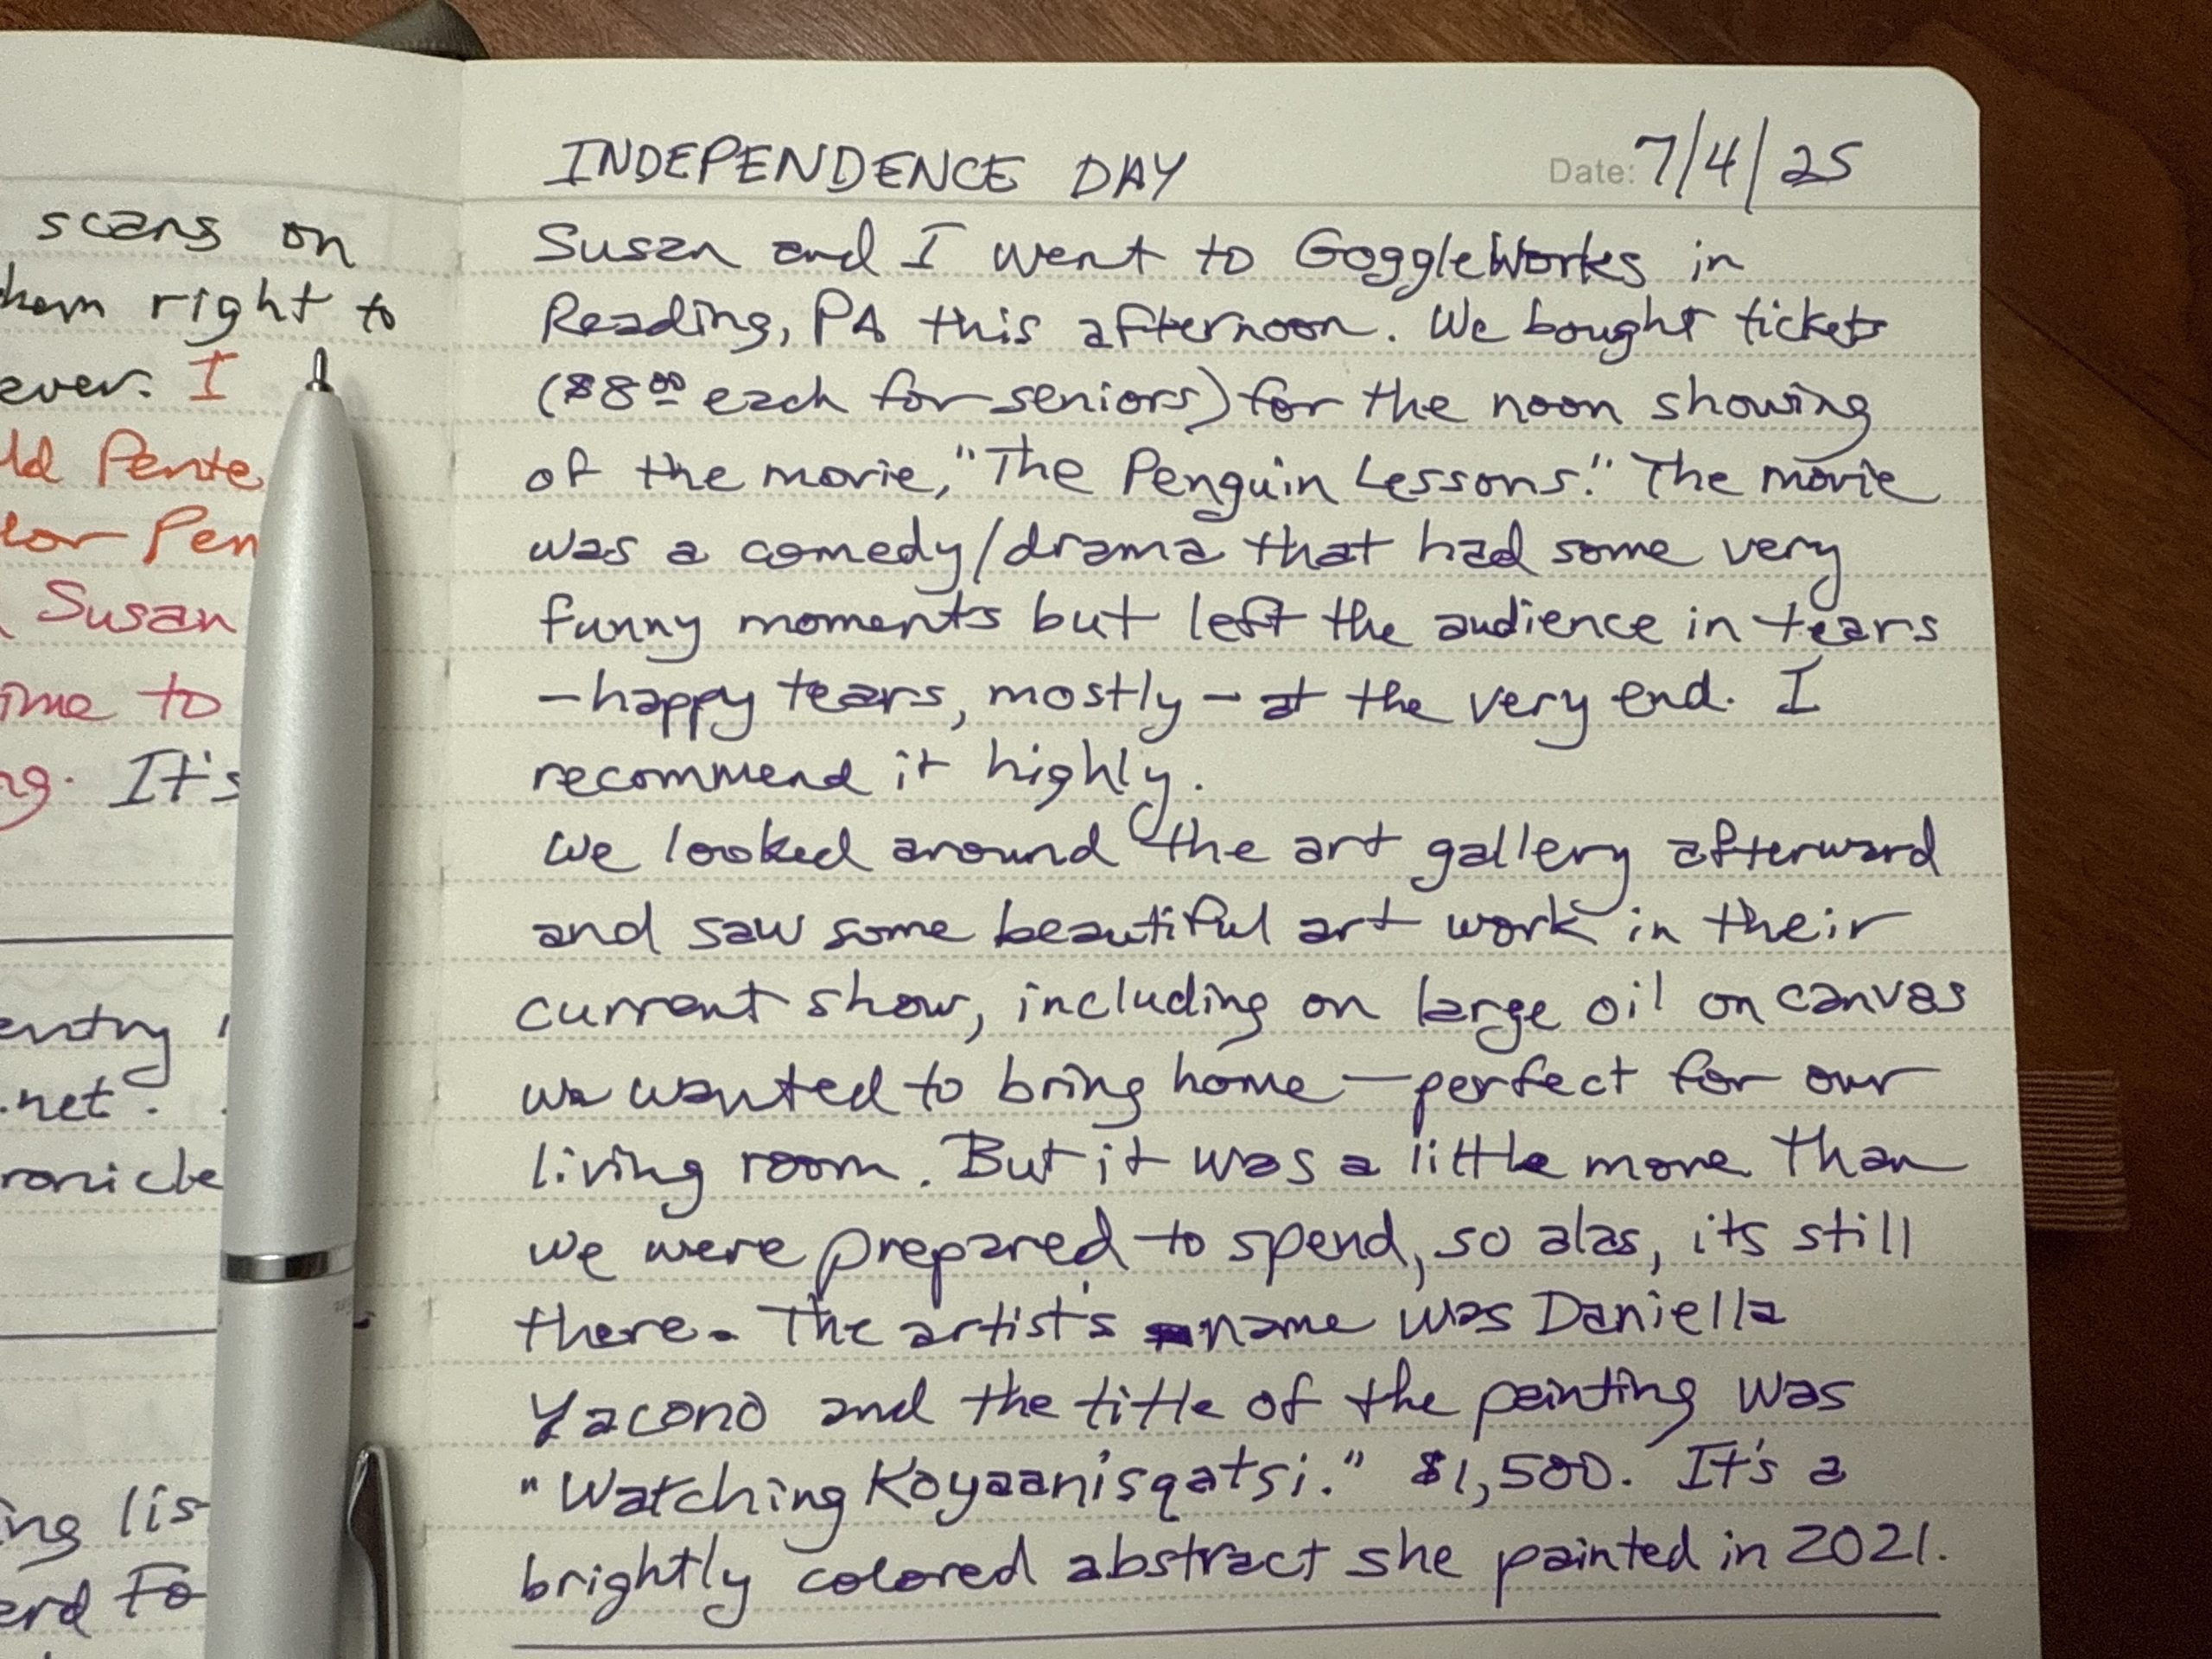 scans on
right to
ever. I
Pente
Pen
Susan
to
It's
entry
.net.
INDEPENDENCE DAY Date: 7/4/25
Susan and I went to GoggleWorks in
Reading, PA this afternoon. We bought tickets
($8.00 each for seniors) for the noon showing
of the movie, "The Penguin Lessons." The movie
was a comedy/drama that had some very
funny moments but left the audience in tears
-happy tears, mostly - at the very end. I
recommend it highly.
We looked around the art gallery afterward
and saw some beautiful art work in their
current show, including on large oil on canvas
we wanted to bring home - perfect for our
living room. But it was a little more than
we were prepared to spend, so alas, its still
there. The artist's name was Daniella
Yacono and the title of the painting was
"Watching Koyaanisqatsi." $1,500. It's a
brightly colored abstract she painted in 2021.